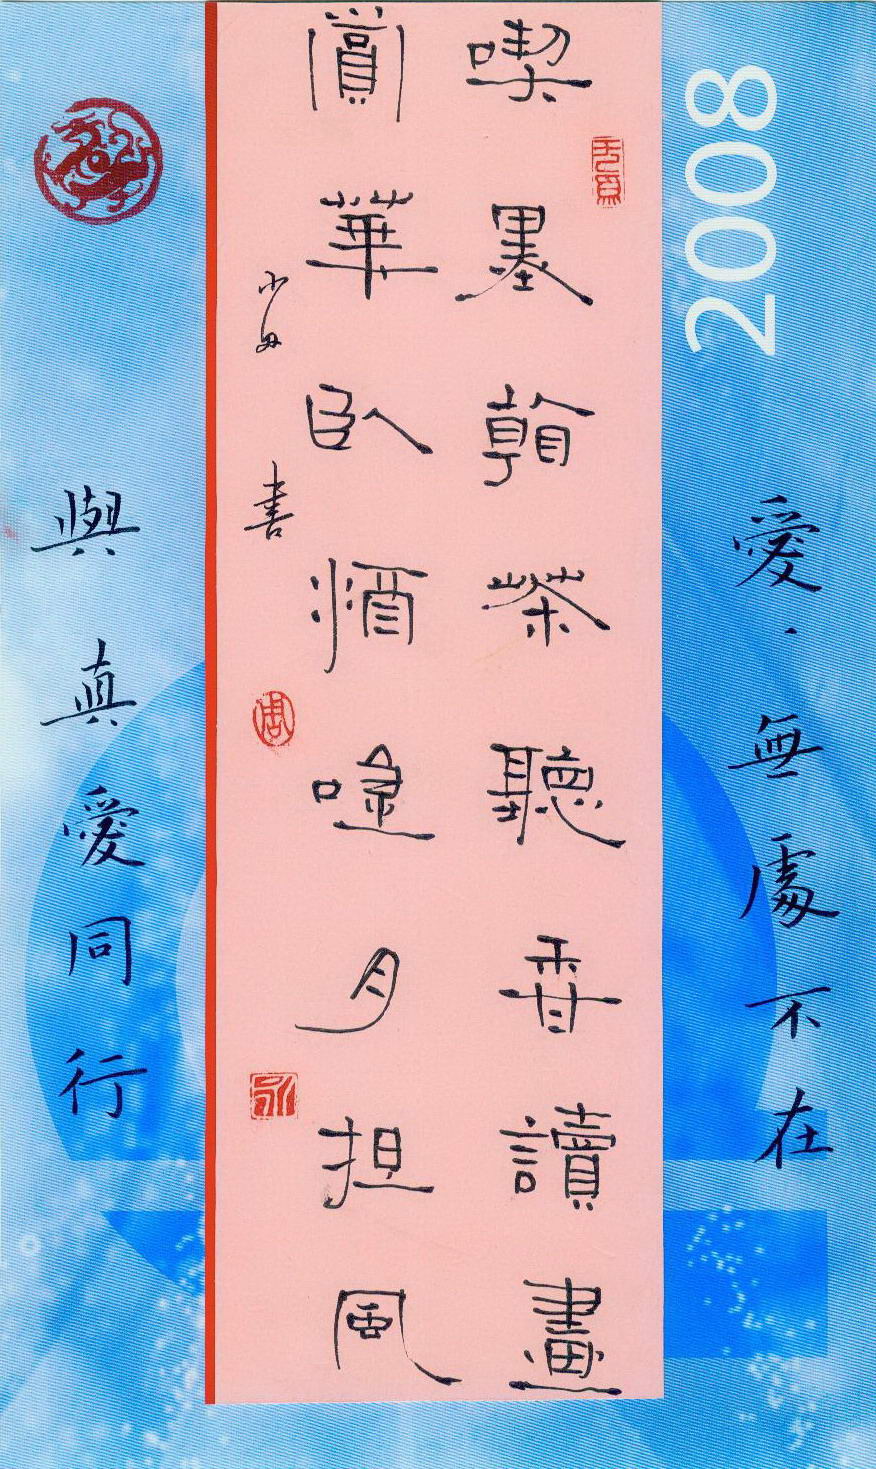 2008
愛·無處不在
喫墨看茶聽香讀畫
賞華臥酒唫月担風
書
周
與真愛同行